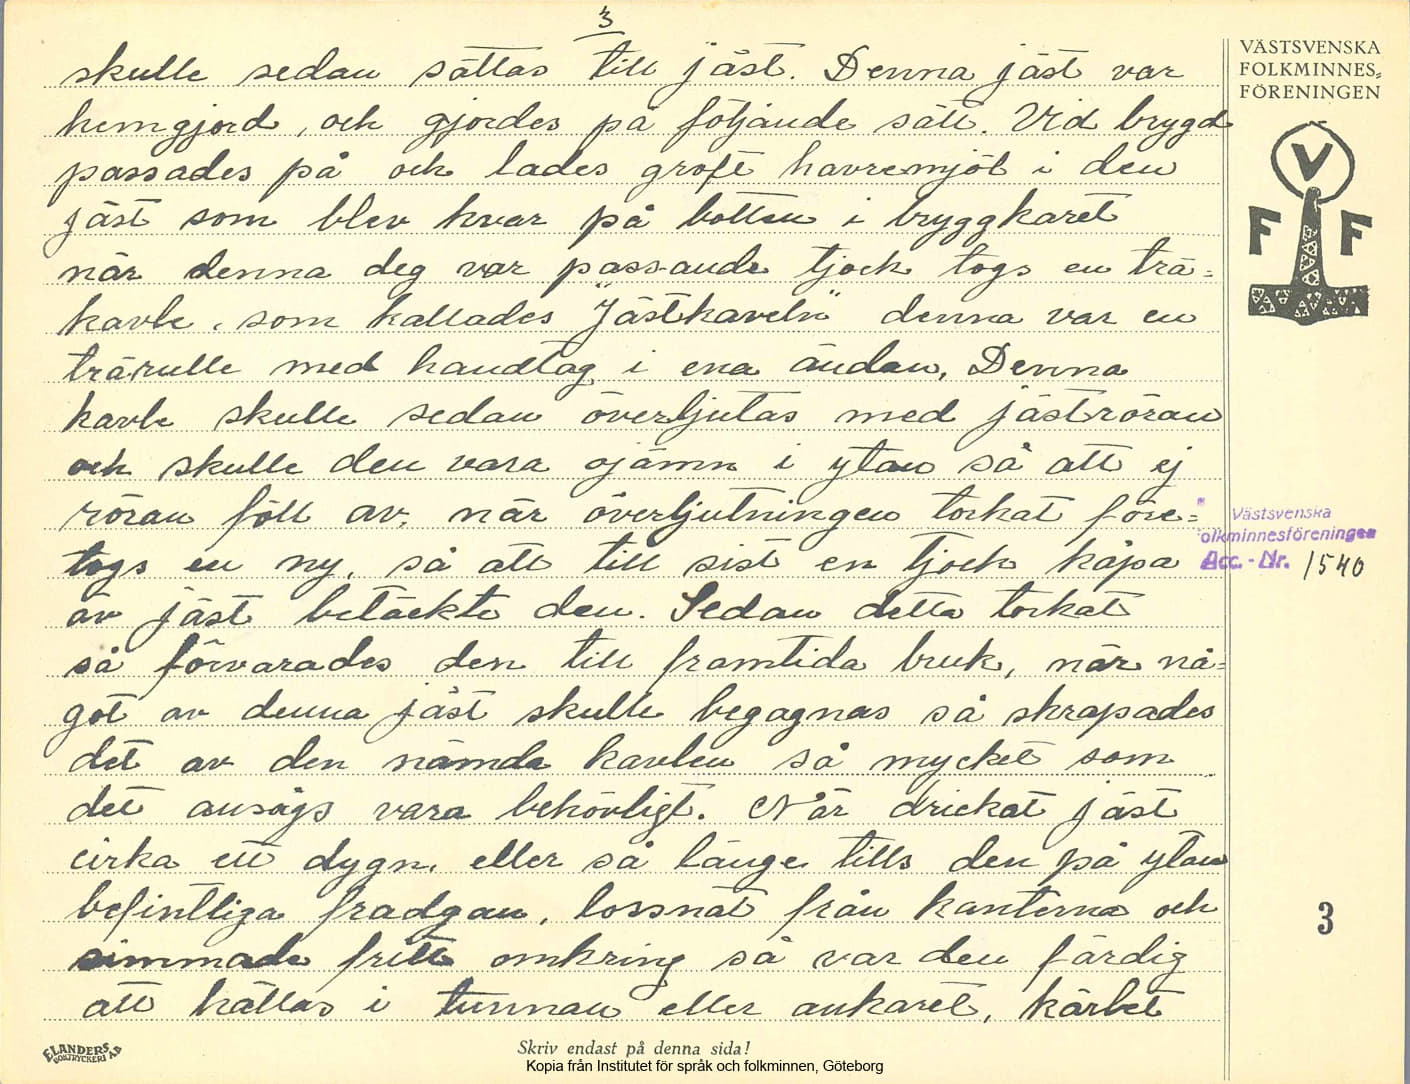 3
skulle sedan sättas till jäst. Denna jäst var
hemgjord, och gjordes på följande sätt. Vid brygd
passades på och lades groft havremjöl i den
jäst som blev kvar på botten i bryggkaret
när denna deg var passande tjock togs en trä=
kavle, som kallades "Jästkaveln" denna var en
trärulle med handtag i ena ändan, Denna
kavle skulle sedan övergjutas med jäströran
och skulle den vara ojämn i ytan så att ej
röran föll av, när övergjutningen torkat före=
togs en ny, så att till sist en tjock kåpa
av jäst betäckte den. Sedan detta torkat
så förvarades den till framtida bruk, när nå=
got av denna jäst skulle begagnas så skrapades
det av den nämda kavlen så mycket som
det ansågs vara behövligt. När drickat jäst
cirka ett dygn, eller så länge tills den på ytan
befintliga fradgan, lossnat från kanterna och
simmade fritt omkring så var den färdig
att hällas i tunnan eller ankaret, kärlet
VÄSTSVENSKA
FOLKMINNES=
FÖRENINGEN
V
F F
Västsvenska
folkminnesföreningen
Acc.-Nr. 1540
3
ELANDERS
BOKTRYCKERI AB
Skriv endast på denna sida!
Kopia från Institutet för språk och folkminnen, Göteborg